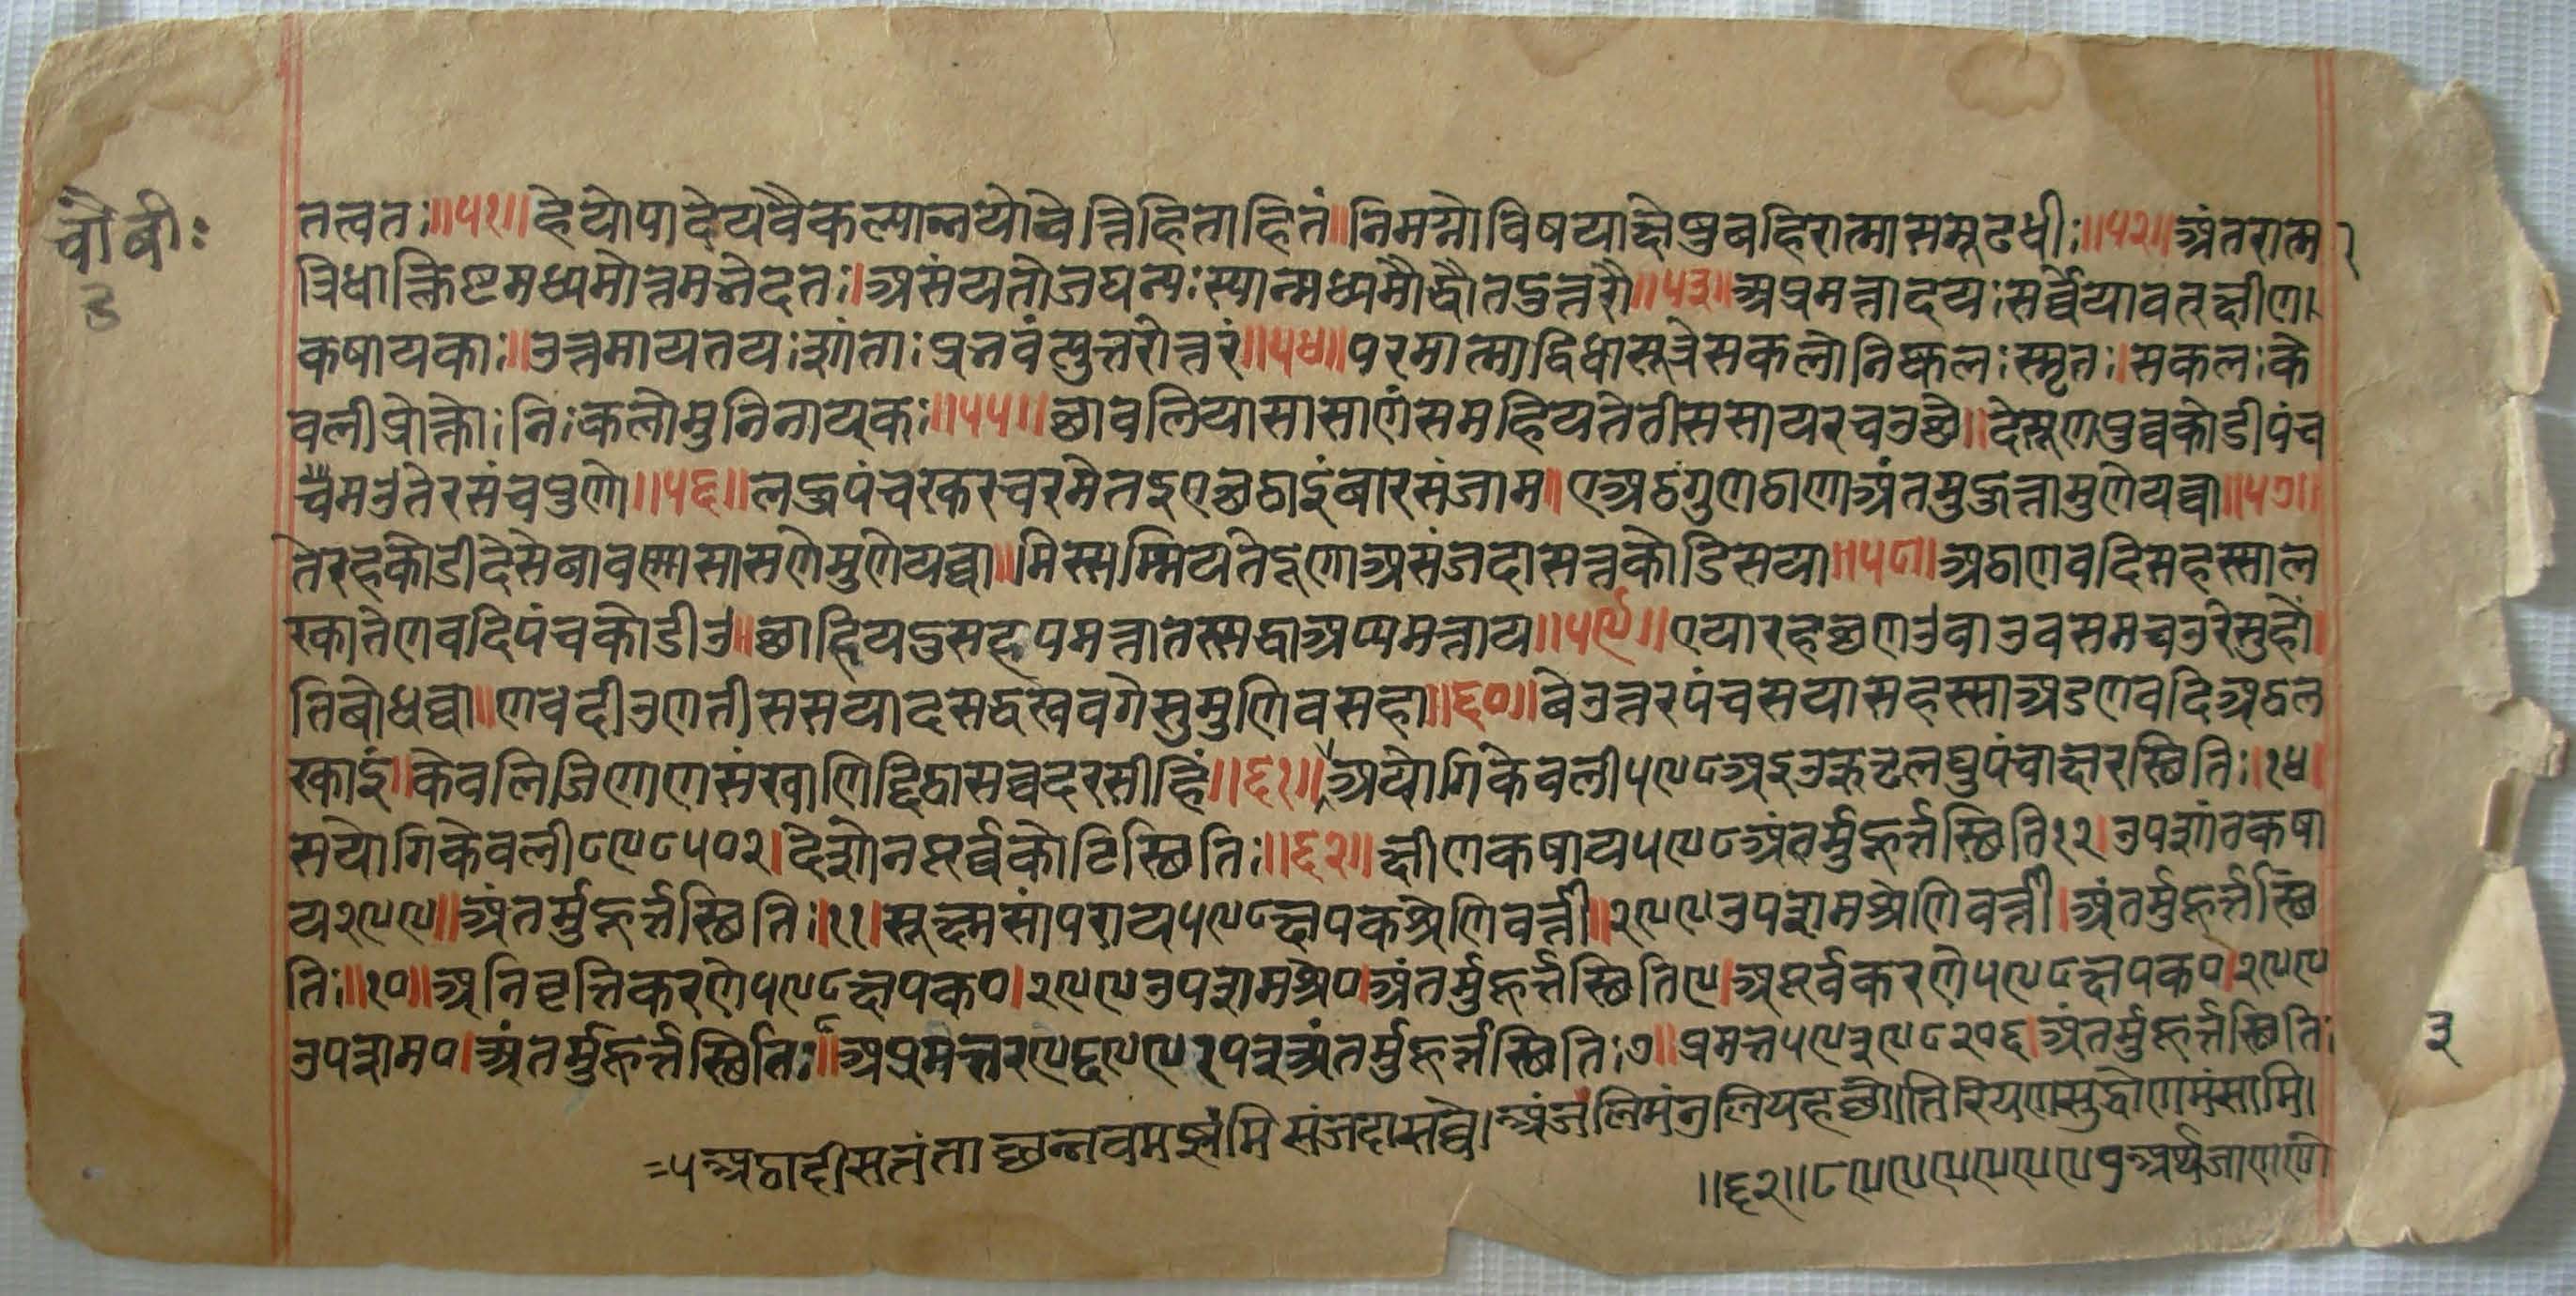 चौबी:
3
तत्वतः॥५१॥हेयोपादेयवैकल्यान्नयोवेत्तिहिताहितं॥निमग्नोविषयाक्षेषुबहिरात्मासमूढधीः॥५२॥अंतरात्म
त्रिधाक्लिष्टमध्यमोत्तमभेदतः।असंयतोजघन्यःस्यान्मध्यमौद्वौतदुत्तरौ॥५३॥अप्रमत्तादयःसर्वेयावत्क्षीण
कषायकाः॥उत्तमायतयःशांताःप्रभवंत्युत्तरोत्तरं॥५४॥परमात्माद्विधासूत्रेसकलोनिष्कलःस्मृतः।सकलःके
वलीप्रोक्तोःनिःकलोमुनिनायकः॥५५॥छावलियासासाणंसमहियतेतीससायरचउछे॥देसूणपुव्वकोडीपंच
चमउतेरसंचपुणो॥५६॥लहुपंचरकरचरमेतइएछठाइंबारसंजाम॥एअठंगुणठाणाअंतमुहुत्तामुणेयव्वा॥५७॥
तेरहकोडीदेसेबावण्णासासणेमुणेयव्वा॥मिस्सम्मियतेदूणाअसंजदासत्तकोडिसया॥५८॥अठाणवदिसहस्साल
रकातेणवदिपंचकोडीउ॥छाहियदुसहपमत्तातस्सद्धाअप्पमत्ताय॥५९॥एयारहछणउवाउवसमचउरेसुहों
तिबोधव्वा॥णवदीउणतीससयादसद्धखवगेसुमुणिवसहा॥६०॥बेउत्तरपंचसयासहस्साअडणवदिअठल
रकाइं।केवलिजिणाणसंखाणिद्दिठासव्वदरसीहिं॥६१॥अयोगिकेवली५९८अइउऋटलघुपंचाक्षरस्थितिः।१४।
सयोगिकेवली८९८५०२।देशोनपूर्व्वकोटिस्थितिः॥६२॥क्षीणकषाय५९८अंतर्मुहूर्त्तस्थिति१२।उपशांतकषा
य२९९॥अंतर्मुहूर्त्तस्थितिः।११।सूक्ष्मसांपराय५९८क्षपकश्रेणिवर्त्ती॥२९९उपशमश्रेणिवर्त्ती।अंतर्मुहूर्त्तस्थि
तिः॥१०॥अनिवृत्तिकरणे५९८क्षपक०।२९९उपशमश्रे०।अंतर्मुहूर्त्तस्थिति९।अपूर्वकरणे५९८क्षपक०।२९९
उपशम०।अंतर्मुहूर्त्तस्थितिः८॥अप्रमत्त२९६९९१०३अंतर्मुहूर्त्तस्थितिः७॥प्रमत्त५९३९८२०६।अंतर्मुहूर्त्तस्थितिः
३
=५अठादीसतंताछन्नवमझंमिसंजदासव्वे।अंजलिमउलियहछो।तिरियणसुद्धोणमंसामि।
॥६२॥८९९९९९९७अर्थजाणणो